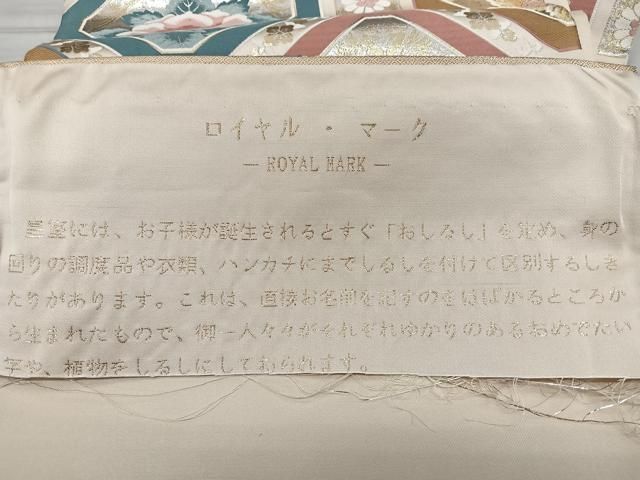 ロイヤル・マーク
— ROYAL MARK —
皇室には、お子様が誕生されるとすぐ「おしるし」を定め、身の
回りの調度品や衣類、ハンカチにまでしるしを付けて区別するしき
たりがあります。これは、直接お名前を記すのをはばかるところか
ら生まれたもので、御一人々々がそれぞれゆかりのあるおめでたい
字や、植物をしるしにしておられます。